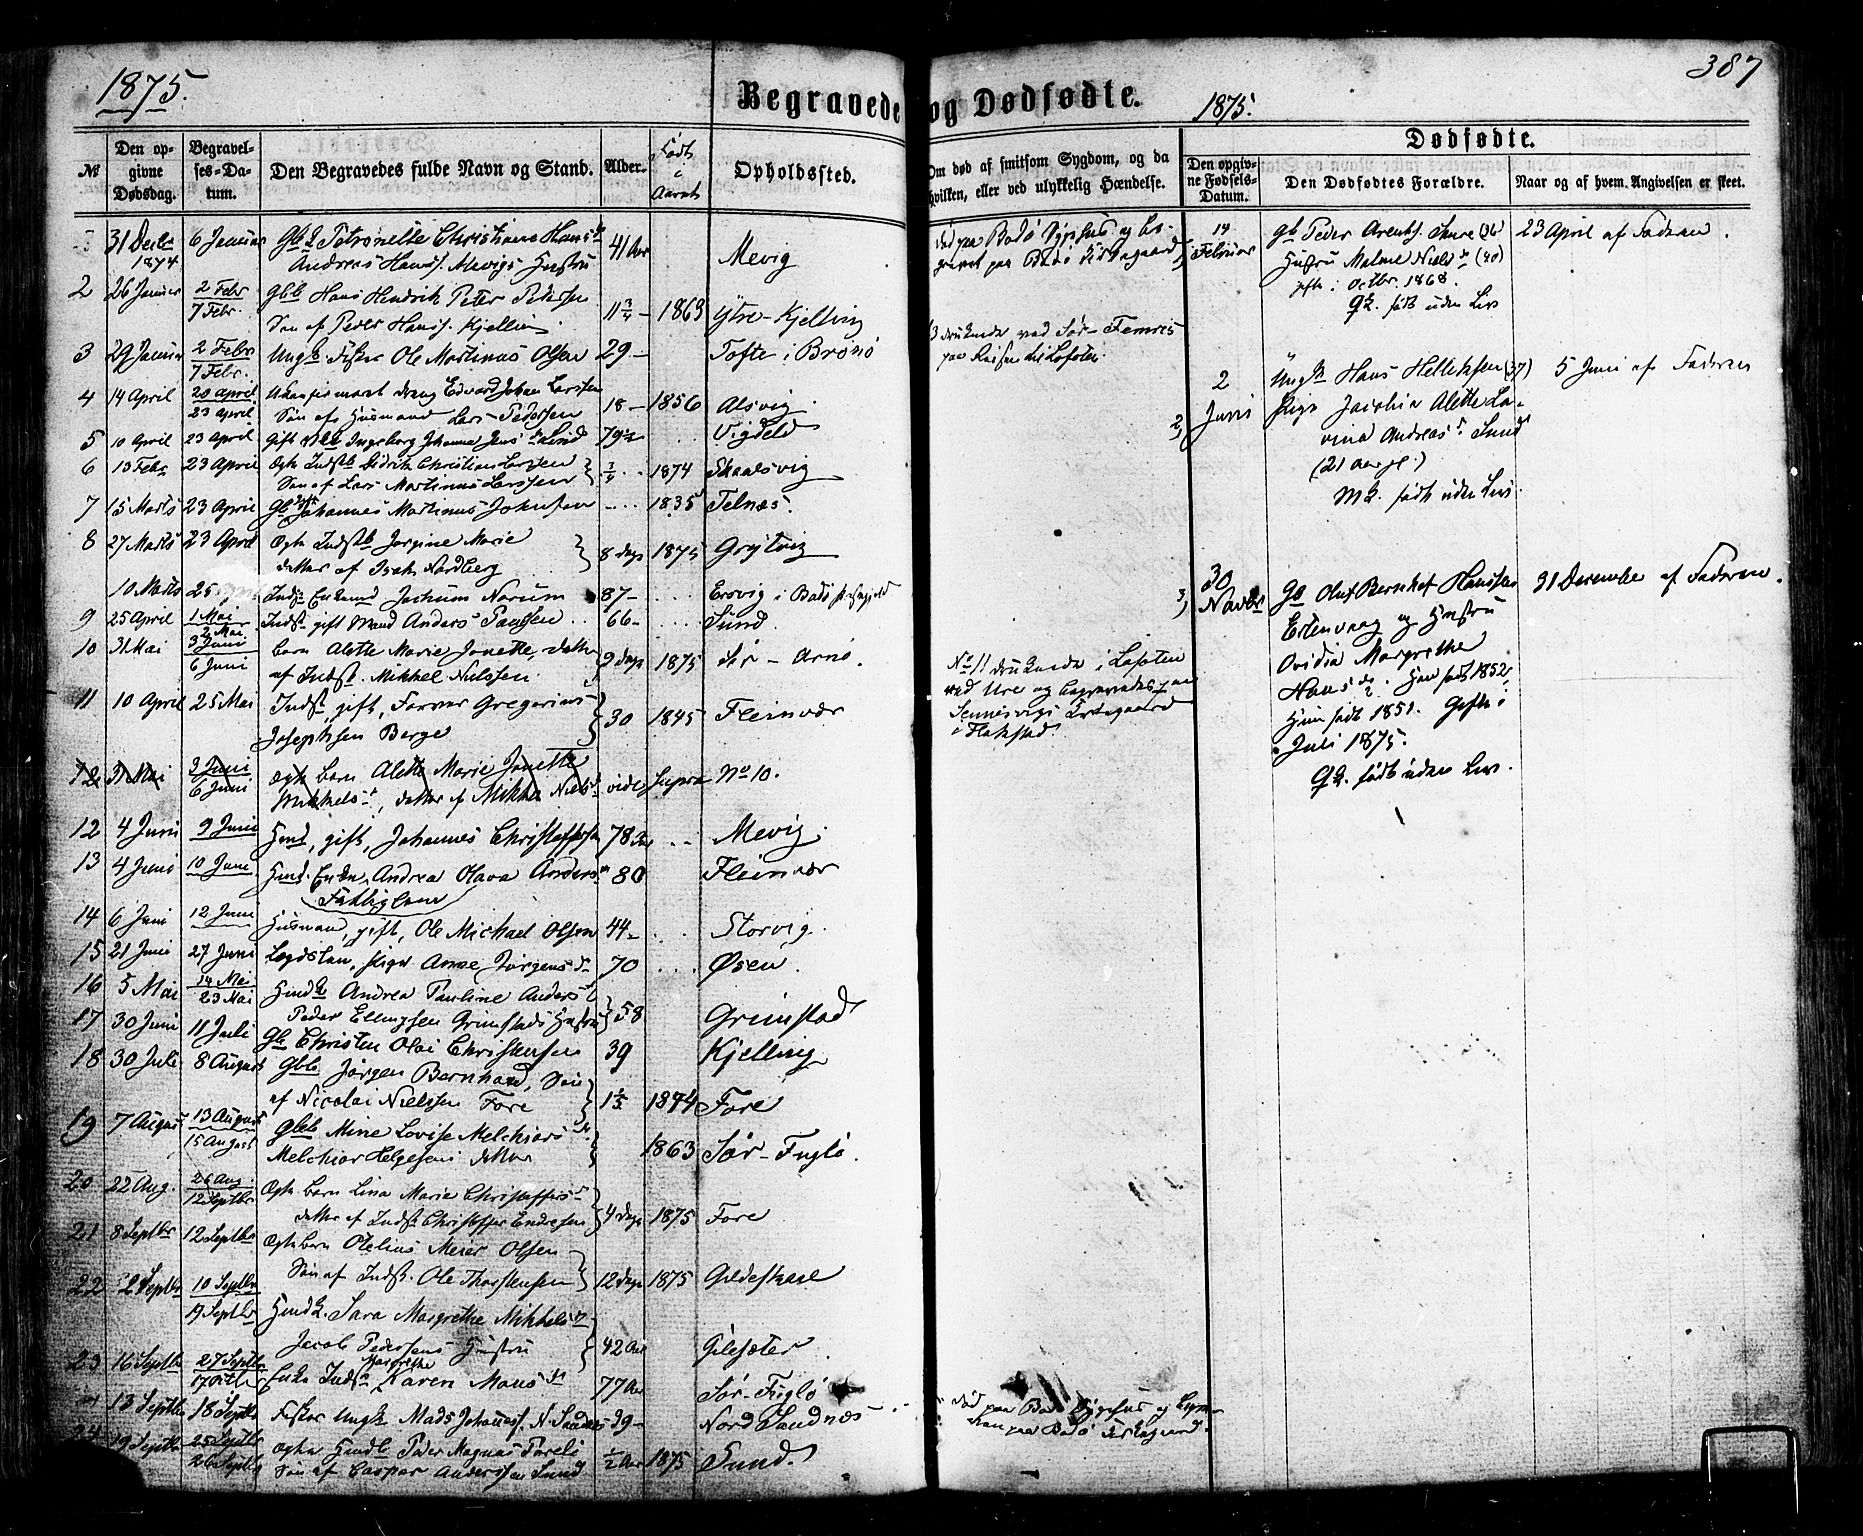 1875.
Begravede og Dødfødte.
1875.
387
№
Den op-
givne
Dødsdag.
Begravel-
ses-Da-
tum.
Den Begravedes fulde Navn og Stand.
Alder.
Født
i
Aaret
Opholdssted.
Om død af smitsom Sygdom, og da
hvilken, eller ved ulykkelig Hændelse.
Dødfødte.
Den opgiv-
ne Fødsels-
Datum.
Den Dødfødtes Forældre.
Naar og af hvem Angivelsen er skeet.
31 Decbr 6 Januar Petronelle Christiane Hans 41 Aar
1874 Andreas Hanss. Mevigs Hustru Mevig
2 26 Januar 2 Febr Hans Hendrik Peter Pedersen
7 Febr. Søn af Peder Hanss. Kjelling. 11 3/4 1863 Ytre-Kjelling
3 29 Januar 2 Febr Ungk Fisker Ole Martinus Olsen 29 Tofte i Brønø
7 Febr.
4 14 April 20 April Edvard Johan Larssen
23 April Søn af Husmand Lars Pedersen 18 1856 Alsvig
5 10 April 23 April gift Ingeborg Johanna Lind 79
6 13 Febr 23 April Didrik Christian Larssen
Søn af Lars Martinus Larssen 3/4 1874 Skaalsvig
7 15 Marts 23 April Johannes Martinus Johnsen 1835 Telnæs.
8 27 Marts 23 April Ægte Jørgine Marie
datter af Isak Nordberg 8 dage 1875 Grytvig
10 Marts 25 Enkemd Jochum Norum 87 i Bodø
9 25 April 1 Mai Indst gift Mand Anders Paulsen 66 Sund.
2 Mai.
10 31 Mai 3 Juni barn Alette Marie Janette, datter
6 Juni af Indst. Mikkel Nielssen. 9 dage 1875 Sør-Arnø.
11 10 April 25 Mai Indst, gift, Gregorius
Josephsen Berge 30 1845 Fleinvær
12 31 Mai 3 Juni barn Alette Marie Janette
6 Juni Mikkels, datter af Mikkel Niels vide Supra No 10.
12 4 Juni 9 Juni gift, Johannes Christoffersen 78 Aar Mevig.
13 4 Juni 10 Juni Enke, Andrea Olava Anders 80 Fleinvær
Fattiglem
14 6 Juni 12 Juni Husmand, gift, Ole Michael Olsen 44 Storvig.
15 21 Juni 27 Juni Lægdslem, pige Anne Jørgens 70 Øsen.
16 5 Mai 14 Mai Andrea Pauline Anders
23 Mai Peder Ellingsen Grimstads Hustru 58 Grimstad
17 30 Juni 11 Juli Christen Olai Christensen 39 Kjelling
18 30 Juli 8 August Jørgen Bernhard, Søn
af Nicolai Nielssen Fore 1874 Fore
19 7 August 13 August Mine Lovise Melchiors
15 August Melchior Helgesens datter 1863 Sør-Fuglø.
20 22 Aug. 26 Aug. Ægte barn Lina Marie Christoffers
12 Septbr datter af Indst Christoffer Endresen 4 dage 1875 Fore
21 8 Septbr 12 Septbr Ægte barn Otelius Meier Olsen
Søn af Indst. Ole Thorstensen 12 dage 1875 Gildeskaal
22 2 Septbr 10 Septbr Sara Margrethe Mikkels
19 Septbr
Jacob Pedersens Hustru 42 Aar Gilesæter
23 16 Septbr 27 Septbr Margrethe
17 Octbr Enke Karen Mons 77 Aar Sør-Fuglø
13 Septbr 18 Septbr Fisker Ungk Mads Johaness. N. Sandnes 39 Nord Sandnæs
24 19 Septbr 25 Septbr Ægte Peder Magnus
26 Septbr Søn af Caspar Anderssen Sund 1/2 Aar 1875 Sund.
død paa Bodø Sygehus og be-
gravet paa Bodø Kirkegaard
3 druknede ved Sør-
paa Reisen til Lofoten.
No 11 druknede i Lofoten
ved Ure og begravedes paa
Sennesvigs Kirkegaard
i Flakstad
død paa Bodø Sygehus og begra-
ven paa Bodø Kirkegaard.
14
Februar
Peder Arentss. (36
Hustru Malene Niels (40)
gifte i Octbr. 1868.
født uden Liv
23 April af Faderen.
2)
2
Juni
Ungk Hans Hellesen (37)
Pige Jacobia Alette La-
vina Andreas Sund
(21 Aar gl.)
født uden Liv.
5 Juni af Faderen
3)
30
Novbr
Olaf Bernhof Hansen
Ertenvaag og Hustru
Ovidia Margrethe
Hans. Han født 1852,
Hun født 1851. Gifte i
Juli 1875.
født uden Liv.
31 December af Faderen.